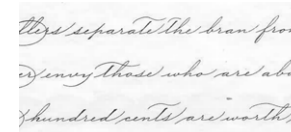 tters separate the bran from
er envy those who are abo
hundred cents are worth